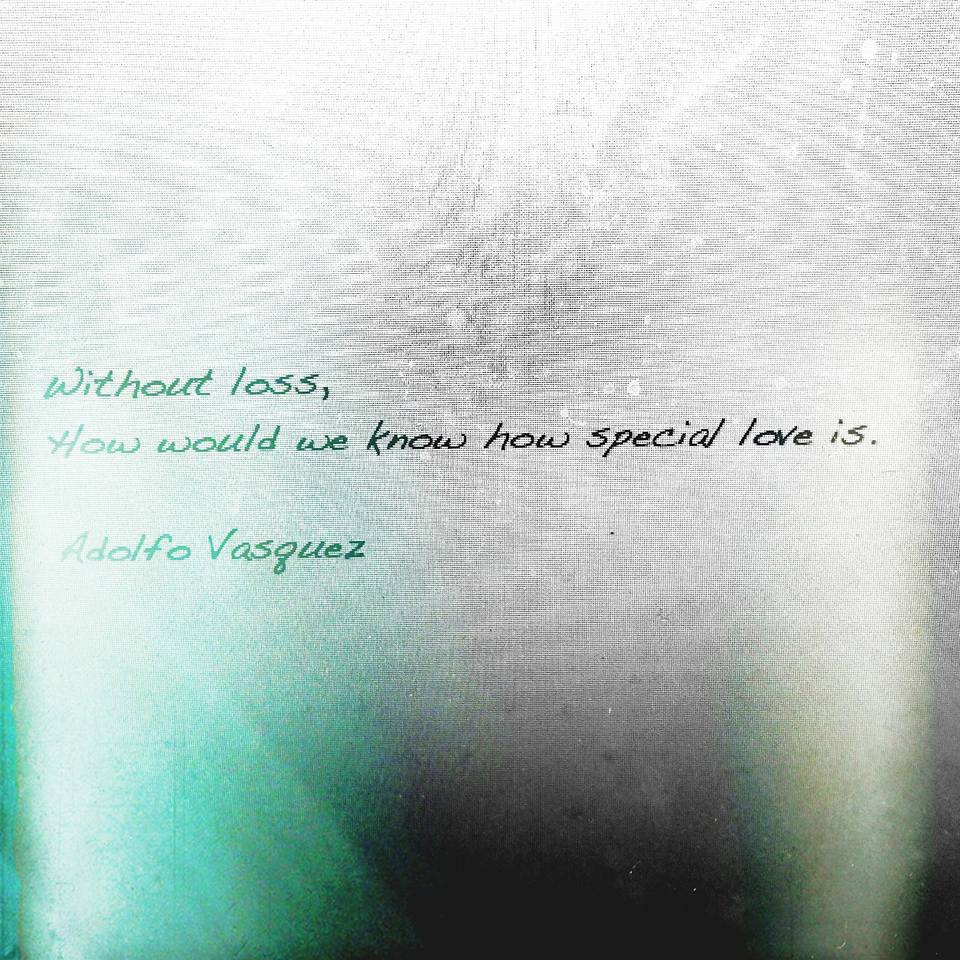 Without loss,
How would we know how special love is.
Adolfo Vasquez